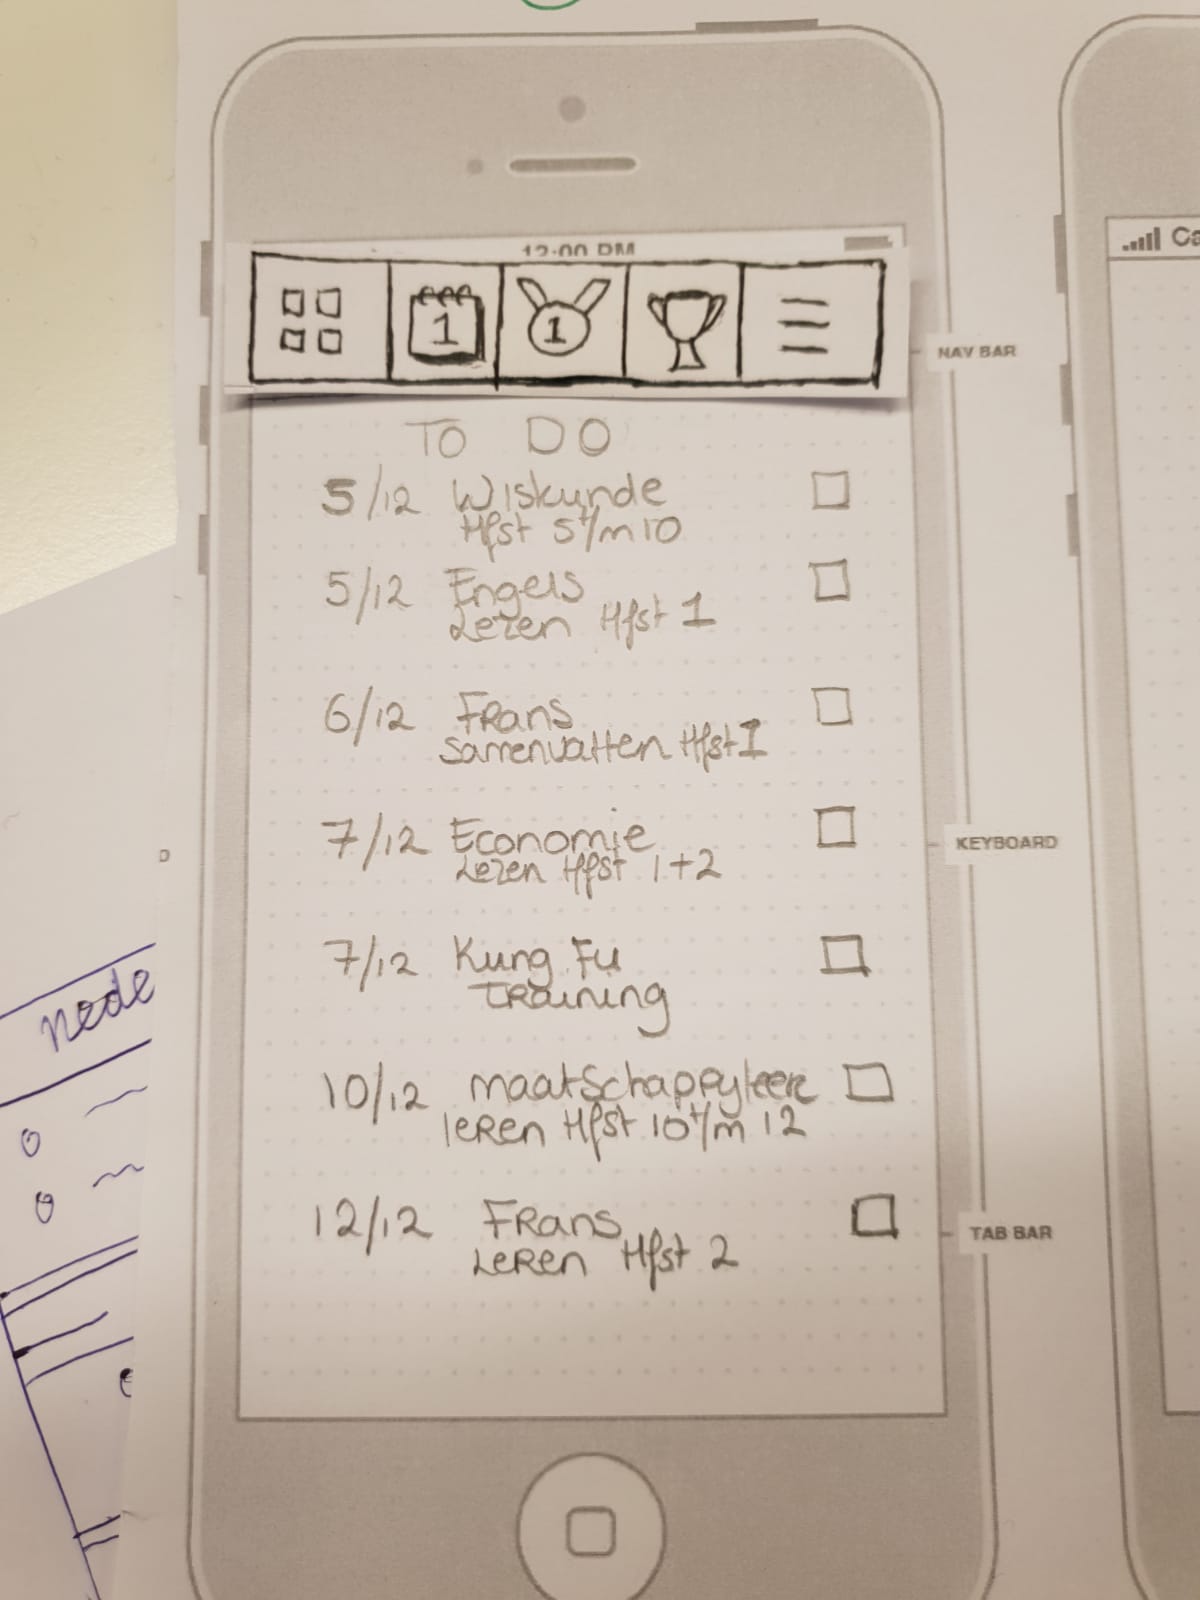 12:00 PM
Ca
1
1
NAV BAR
TO DO
5/12 Wiskunde
Hfst 5 t/m 10
5/12 Engels
Lezen Hfst 1
6/12 Frans
Samenvatten Hfst 1
7/12 Economie
Lezen Hfst 1+2
KEYBOARD
7/12 Kung Fu
Training
10/12 maatschappyleer
leren Hfst 10 t/m 12
12/12 Frans
Leren Hfst 2
TAB BAR
D
nede